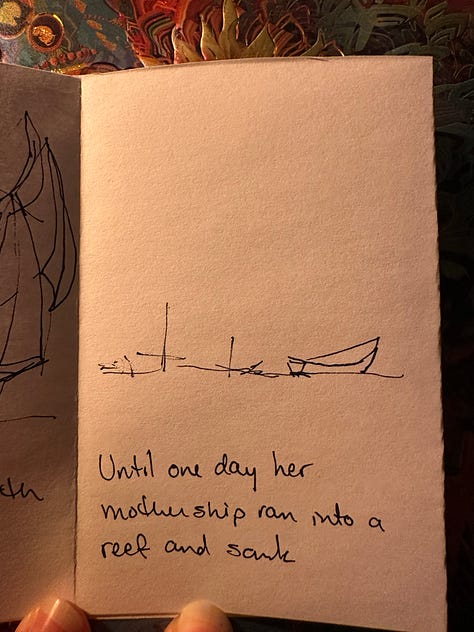 Until one day her
mothership ran into a
reef and sank